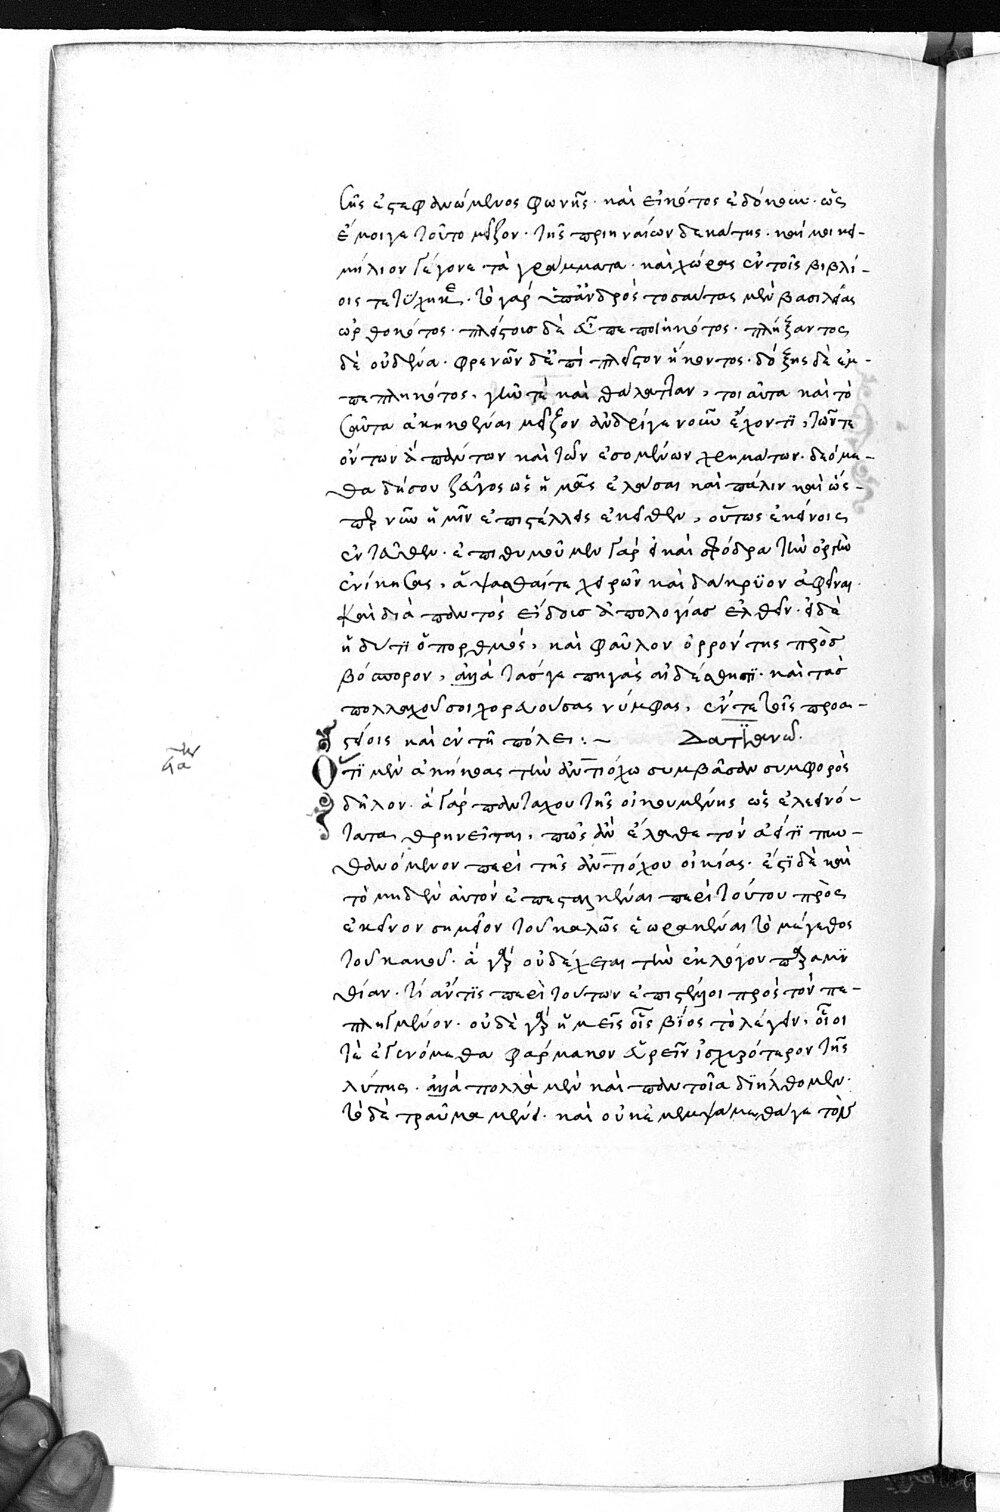 σῆς ἐστεφανωμένος φωνῆς· καὶ εἰκότος ἐδόκουν· ὡς
ἔμοιγε τοῦτο μεῖζον· τῆς πριηναίων δεκάτης· καί μοι κει-
μήλιον γέγονε τὰ γράμματα· καὶ χώρας ἐν τοῖς βιβλί-
οις τετύχηκε· τὸ γὰρ ἀνδρὸς τοσαύτας μὲν βασιλείας
ὠρθοκότος· πλείστοις δὲ πεποιηκότος· πλήξαντος
δὲ οὐδένα· φρενῶν δὲ ἐπὶ πλεῖστον ἥκοντος· δόξης δὲ ἐμ-
πεπληκότος, γῆν τὲ καὶ θάλατταν, τοιαῦτα καὶ τὸ
ταῦτα ἀκηκοέναι μεῖζον ἀνδρί γε νοῦν ἔχοντι, τῶν τε
ὄντων ἁπάντων καὶ τῶν ἐσομένων χρημάτων· δεόμε-
θα δή σου ζεῦγος ὡς ἡμᾶς ἐλάσαι καὶ πάλιν καὶ ὥσ-
περ νῦν ἡμῖν ἐπιστέλλεις ἐκεῖθεν, οὕτως ἐκείνοις
ἐντεῦθεν· ἐπιθυμοῦμεν γὰρ εἰ καὶ σφόδρα τὴν ὀργὴν
ἐνίκησας, ἅψασθαί τε χειρῶν καὶ δακρύον ἀφεῖναι
καὶ διὰ παντὸς εἴδους ἀπολογίας ἐλθεῖν· εἰ δὲ
ἡδύ τι ὁ πορθμός, καὶ φαῦλον ὁρρόντης πρὸς
βόσπορον, ἀλλὰ τάς γε πηγὰς αἰδέσθητι· καὶ τὰς
πολλαχοῦ σοι χορευούσας νύμφας, ἔν τε τοῖς προα-
στείοις καὶ ἐν τῇ πόλει :~ Δατιανῷ.
Ὅτι μὲν ἀκήκοας τὴν ἀντιόχω συμβᾶσαν συμφορὰν
δῆλον· ἃ γὰρ πανταχοῦ τῆς οἰκουμένης ὡς ἐλεεινό-
τατα θρηνεῖται, πῶς ἂν ἔλαθε τὸν ἀεί τι πυν-
θανόμενον περὶ τῆς ἀντιόχου οἰκίας· ἔστι δὲ καὶ
τὸ μηδὲν αὐτὸν ἐπεσταλκέναι περὶ τούτου πρὸς
ἐκεῖνον σημεῖον τοῦ καλῶς ἑωρακέναι τὸ μέγεθος
τοῦ κακοῦ· ἃ γὰρ οὐδέχεται τὴν ἐκ λόγον παραμυ
θίαν· τί ἄν τις περὶ τούτων ἐπιστέλλοι πρὸς τὸν πε-
πληγμένον· οὐδὲ γὰρ ἡμεῖς οἷς βίος τὸ λέγειν, οἷοί
τε ἐγενόμεθα φάρμακον εὑρεῖν ἰσχυρότερον τῆς
λύπης· ἀλλὰ πολλὰ μὲν καὶ παντοῖα διήλθομεν·
τὸ δὲ τραῦμα μένει· καὶ οὐκ ἐμεμψάμεθά γε τὸν